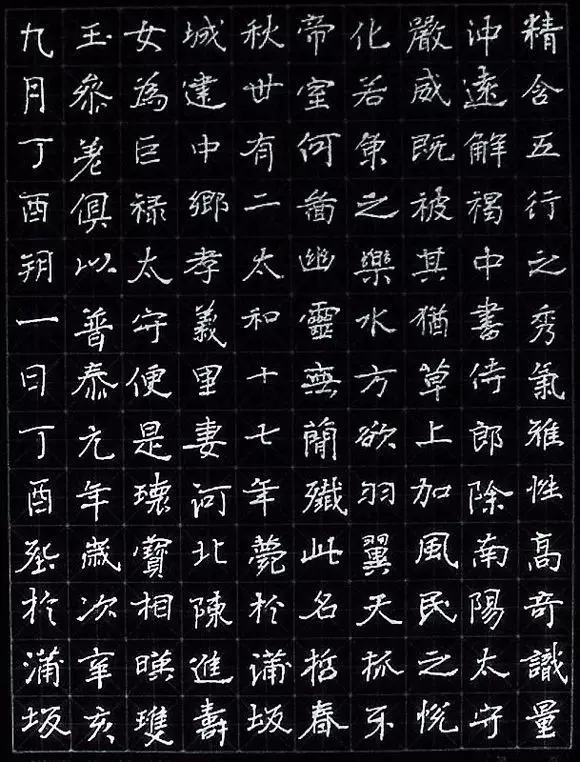 精含五行之秀氣雅性高奇識量
沖遠解褐中書侍郎除南陽太守
嚴威既被其猶草上加風民之悅
化若魚之樂水方欲羽翼天抓不
帝室何啚幽靈無簡殲此名哲春
秋世有二太和十七年薨於蒲坂
城建中鄉孝義里妻河北陳進壽
女為巨祿太守便是瓌寶相暎瓊
玉參差俱以普泰元年歲次辛亥
九月丁酉朔一日丁酉葬於蒲坂